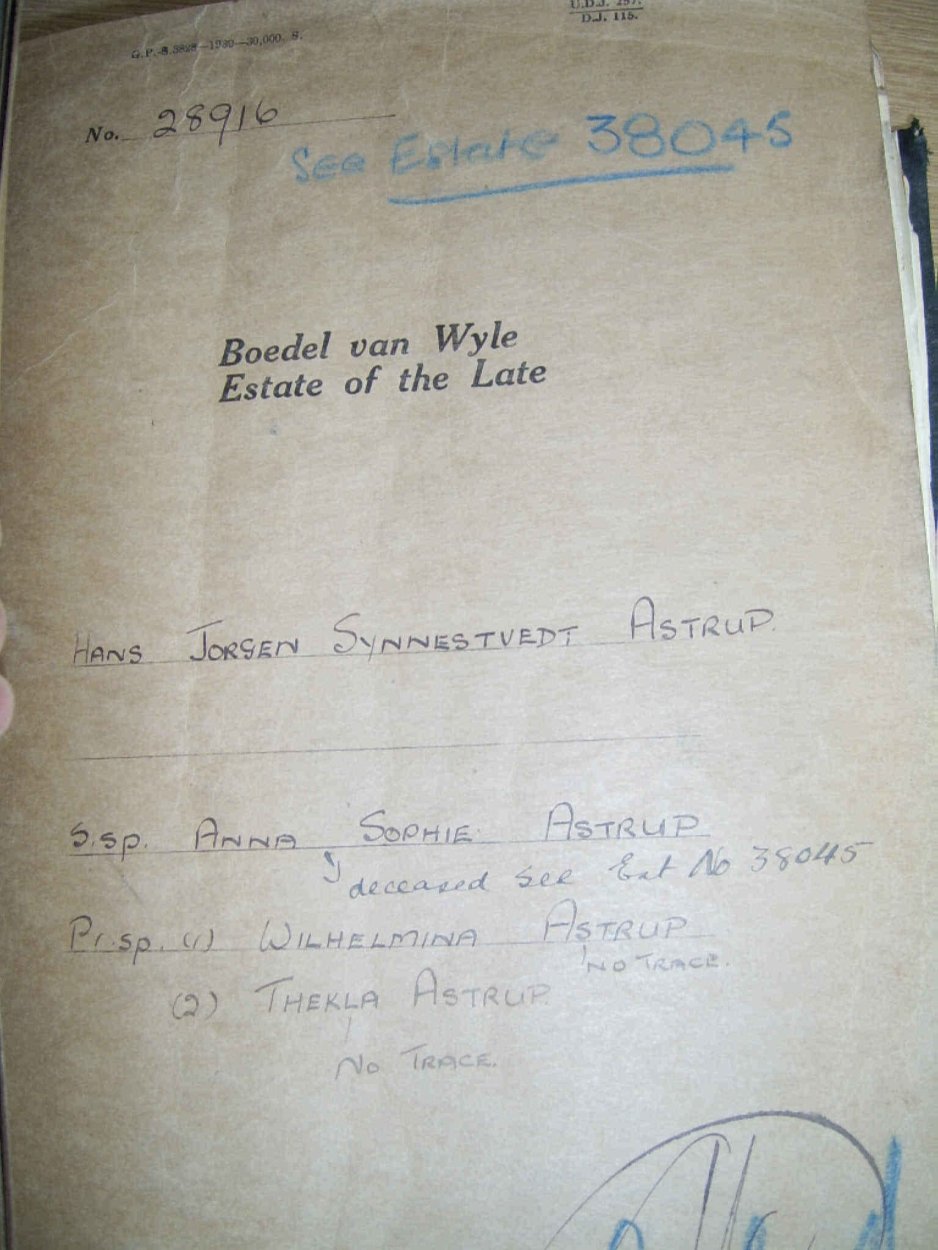 U.D.J. 257.
D.J. 115.
G.P.-S.3828—1930—30,000. S.
No. 28916
See Estate 38045
Boedel van Wyle
Estate of the Late
HANS JORGEN SYNNESTVEDT ASTRUP
S.sp. ANNA SOPHIE ASTRUP
deceased See Est No 38045
Pr.sp. (1) WILHELMINA ASTRUP
NO TRACE.
(2) THEKLA ASTRUP
NO TRACE.